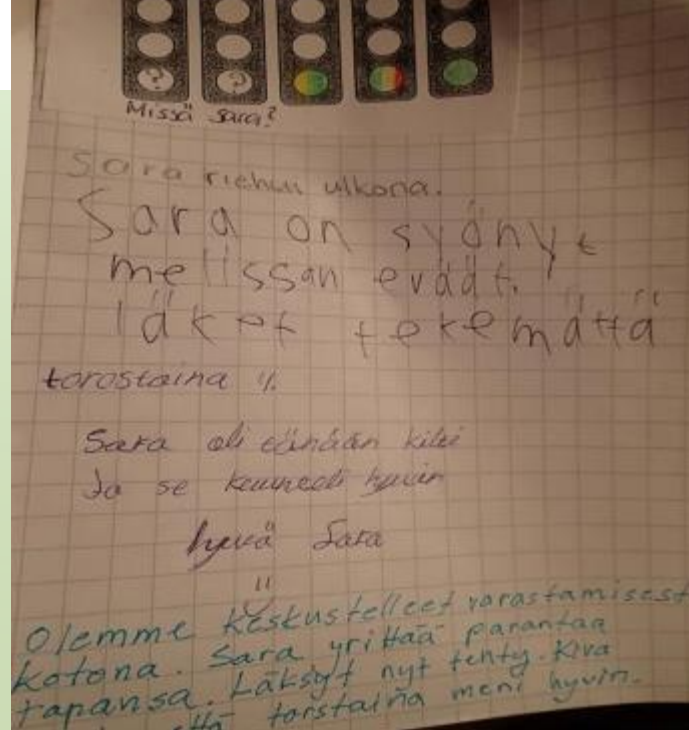 ? ?
Missä Sara?
Sara riehuu ulkona.
Sara on syönyt
melissan eväät.
läket tekemättä
torostaina 11.
Sara oli tänään kiltti
Ja se kuunteli hyvin
hyvä Sara
Olemme keskustelleet varastamisest
kotona. Sara yrittää parantaa
tapansa. Läksyt nyt tehty. Kiva
että torstaina meni hyvin.